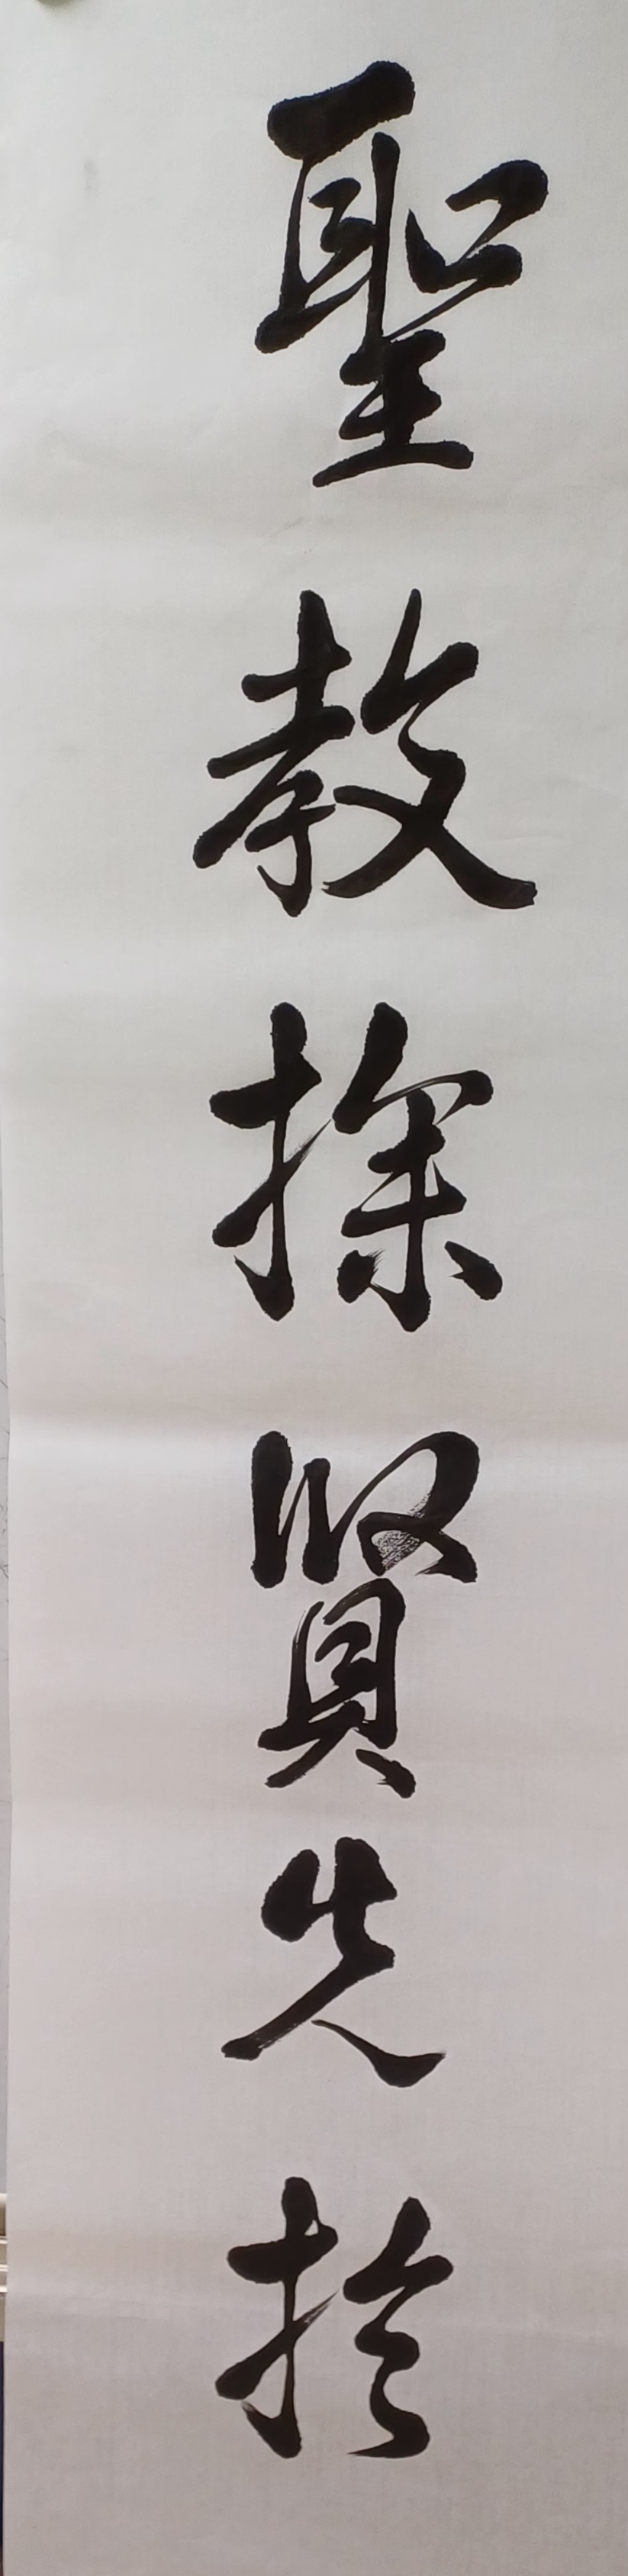 聖教探賢先於